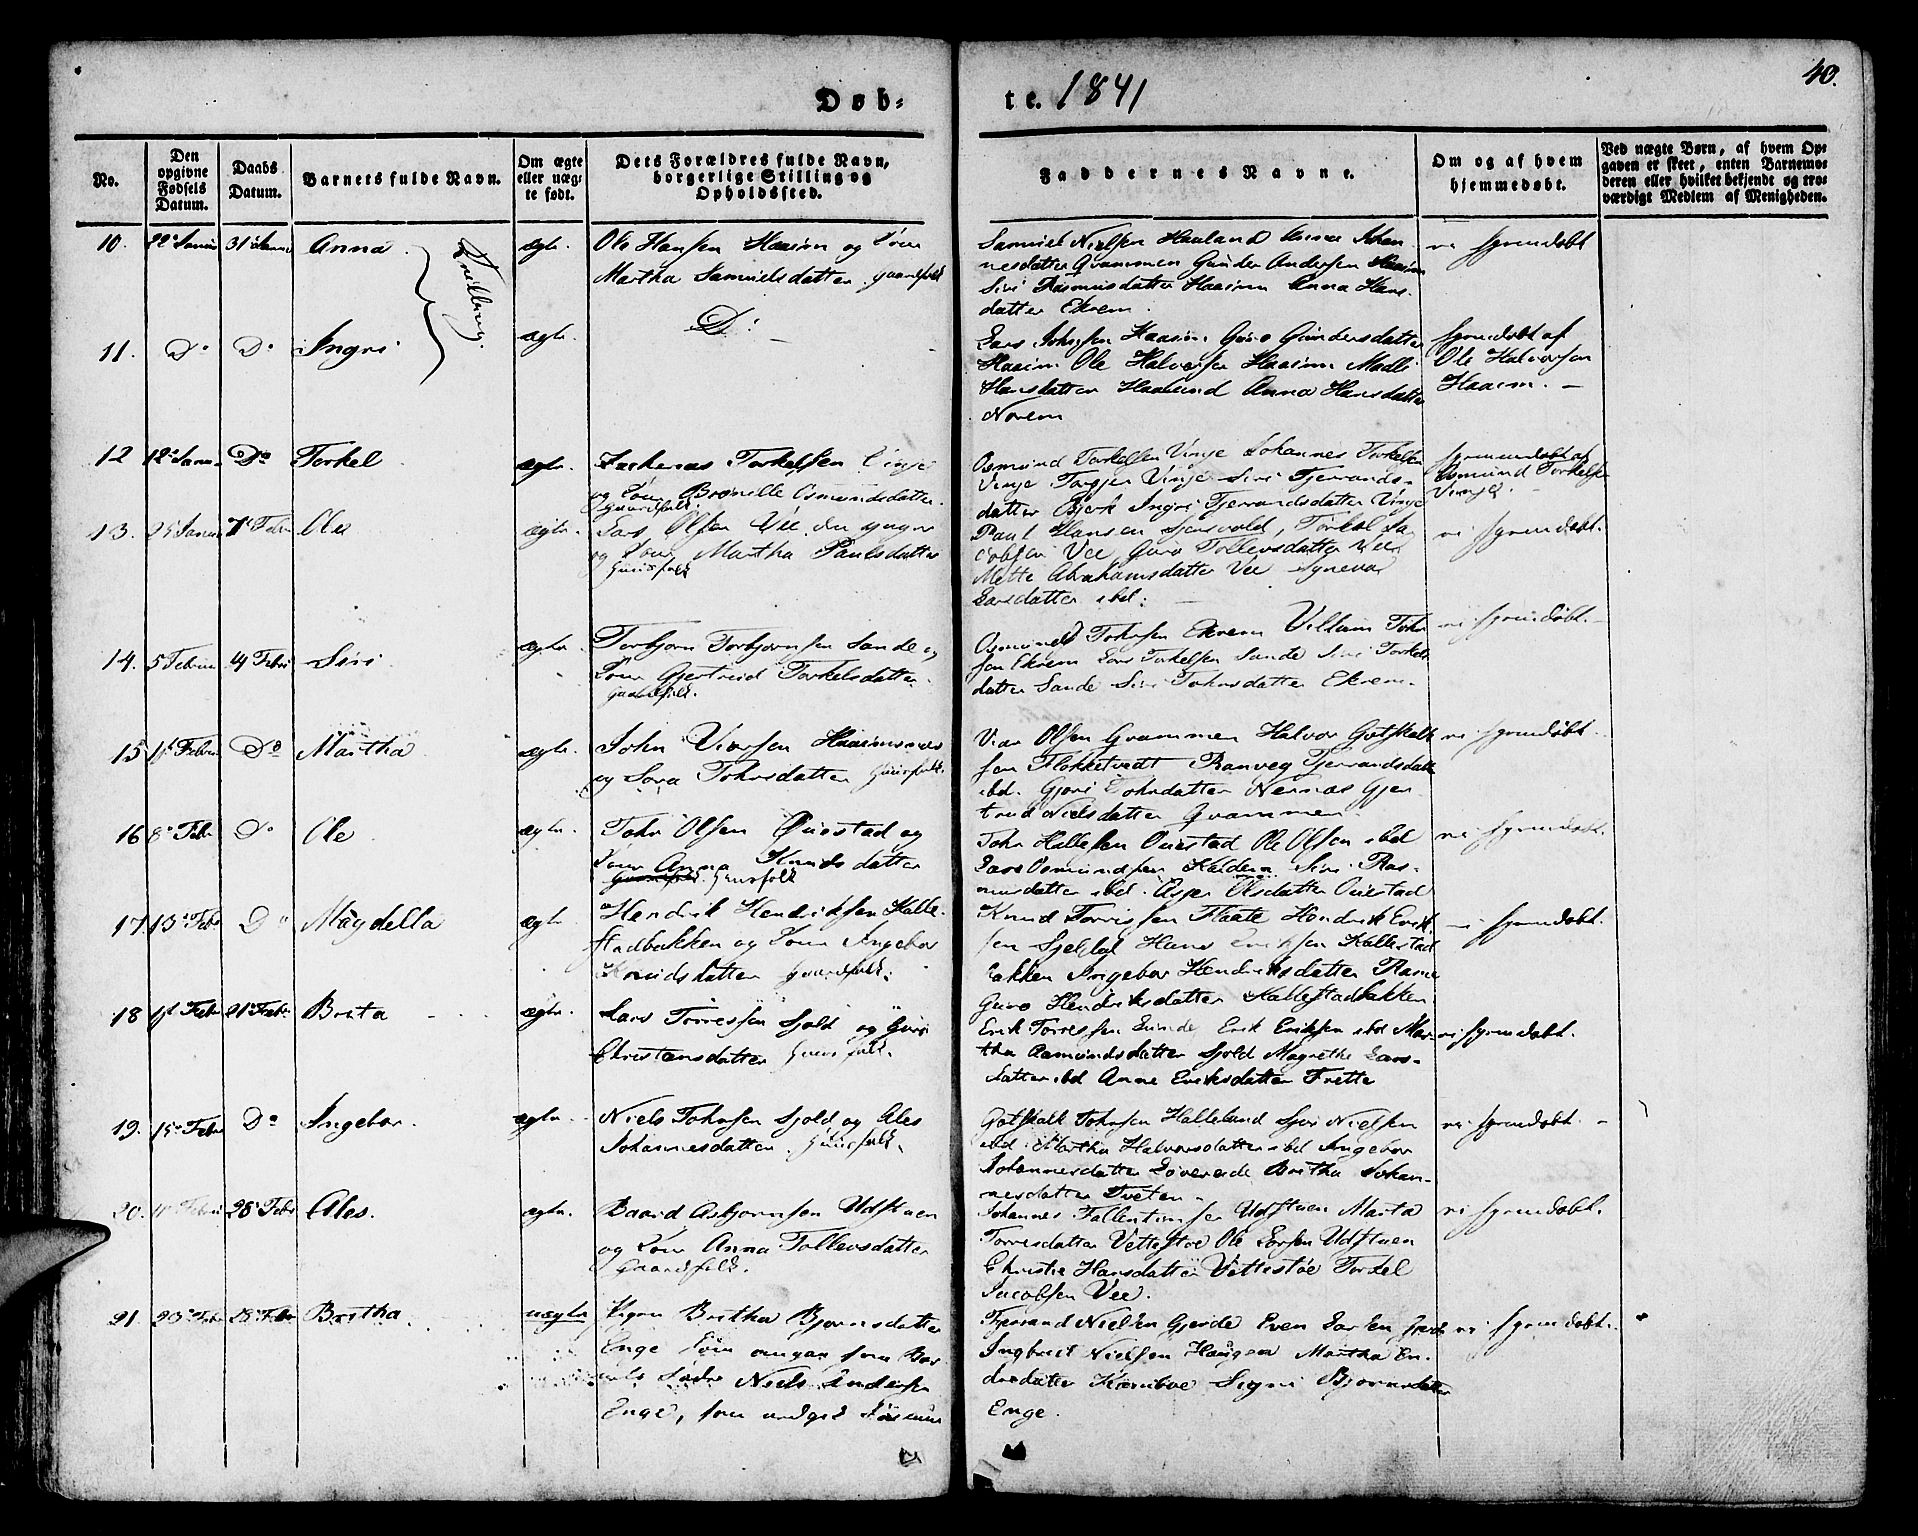 Døb-
te. 1841
40.
No.
Den opgivne Fødsels Datum.
Daabs Datum.
Barnets fulde Navn.
Om ægte eller uægte født.
Dets Forældres fulde Navn, borgerlige Stilling og Opholdssted.
Faddernes Navne.
Om og af hvem hjemmedøbt.
Ved uægte Børn, af hvem Opgaven er skeet, enten Barnemoderen eller hvilket bekjendt og troværdigt Medlem af Menigheden.
10. 22 Janu 31 Janu Anna
ægte.
Ole Hansen Haaim og Kone
Martha Samuelsdatter gaardfolk
Samuel Nielsen Haaland Johan-
nesdatter Qvammen Gunder Andersen Haaim
Siri Rasmusdatter Haaim Anna Hans-
datter Ekrem.
ei hjemdøbt
11. Do Do Ingri
Tvilling
ægte.
Do
Lars Johnsen Haaim Guro Gundersdatter
Haaim Ole Halvorsen Haaim
Hansdatter Haaland Anna Hansdatter
Norem
hjemdøbt af
Ole Halvorsen
Haaim.
12 12 Janu Do Torkel
ægte.
Zacherias Torkelsen Vinje
og Kone Bronille Osmundsdatter
Gaardfolk.
Osmund Torkelsen Vinje Johannes Torkelsen
Vinje Torgjer Vinje Siri Tjerrands-
datter Bjerk Ingri Tjerrandsdatter Vinje
hjemmedøbt af
Osmund Torkelsen
Vinje.
13. 25 Janu 7 Febr Ole
ægte.
Lars Olsen Vee den yngre
og Kone Martha Paulsdatter
Huusfolk
Paul Hansen Torkel Ja-
cobsen Vee Guro Tollevsdatter Vee
Mette Abrahamsdatter Vee Synneva
Larsdatter ibd:
ei hjemdøbt.
14. 5 Febru 14 Febr Siri
ægte.
Torbjørn Torbjørnsen Sande og
Kone Gjertrud Torkelsdatter
Gaardfolk.
Osmund Johnsen Ekrem Villum John
sen Ekrem Lars Torkelsen Sande Siri Torkels
datter Sande Siri Johnsdatter Ekrem.
ei hjemdøbt.
15 Febru Do Martha
ægte.
John Viersen
og Sara Johnsdatter Huusfolk.
Viar Olsen Qvammen Halvor Gotskalk
sen Flokketvedt Ranveg Tjerrandsdatter
ibd. Gjori Johnsdatter Nernæs Gjer
trud Nielsdatter Qvammen.
ei hjemdøbt.
16 8 Febr Do Ole
ægte.
John Olsen Øuestad og
Kone Anna Knudsdatter
Huusfolk
John Hallesen Ouestad Ole Olsen ibd
Lars Osmundsen Siri Ras-
musdatter ibd. Olsdatter Ouestad
ei hjemdøbt.
17 13 Febr Do Magdella
ægte.
Hendrik Hendriksen Kalle-
stadbakken og Kone Ingebor
Knudsdatter Gaardfolk.
Knud Torrissen Flaate Hendrik Erik
sen Hans Eriksen Kallestad
bakken Ingebor Hendriksdatter
Guro Hendriksdatter Kallestadbakken
ei hjemdøbt.
18 Febr 21 Febr Brita
ægte.
Lars Torressen Sjold og Guri
Christensdatter Huusfolk.
Erik Torressen Erik Eriksen ibd Mar-
tha Osmundsdatter Sjold Magrethe Lars-
datter ibd Anne Eriksdatter Frette
ei hjemdøbt.
19. 15 Febr Do Ingebor
ægte.
Niels Johnsen Sjold og Ales
Johannesdatter Huusfolk.
Gotskalk Johnsen Halleland Nielsen
ibd Martha Halvorsdatter ibd Ingebor
Johannesdatter Brita Johan-
nesdatter Tveten
ei hjemdøbt.
20. Febru 28 Febr Ales.
ægte.
Baard Asbjørnsen Udstuen
og Kone Anna Tollevsdatter
Gaardfolk.
Johannes Fallentinsen Udstuen Marta
Torresdatter Vettestøe Ole Udstuen
Christie Hansdatter Vettestøe Torkel
Jacobsen Vee.
ei hjemdøbt.
21. 20 Febr 28 Febr Britha
uægte
Pigen Britha Bjørnsdatter
Enge som angav som Bar
nets Fader Niels Endresen
Enge, som
Tjerrand Nielsen Gjerde Even Larsen
Ingbret Nielsen Haugen Martha En-
dredatter Signi Bjørnsdatter
Enge.
ei hjemdøbt.